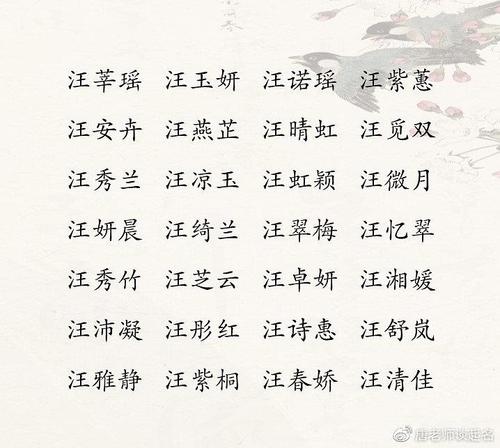 汪莘瑶 汪玉妍 汪诺瑶 汪紫蕙
汪安卉 汪燕芷 汪晴虹 汪觅双
汪秀兰 汪凉玉 汪虹颖 汪微月
汪妍晨 汪绮兰 汪翠梅 汪忆翠
汪秀竹 汪芝云 汪卓妍 汪湘媛
汪沛凝 汪彤红 汪诗惠 汪舒岚
汪雅静 汪紫桐 汪春娇 汪清佳
唐老师谈起名